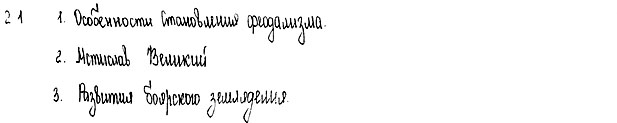 21 1. Особенности становления феодализма.
2. Мстислав Великий
3. Развития боярского земляделия.